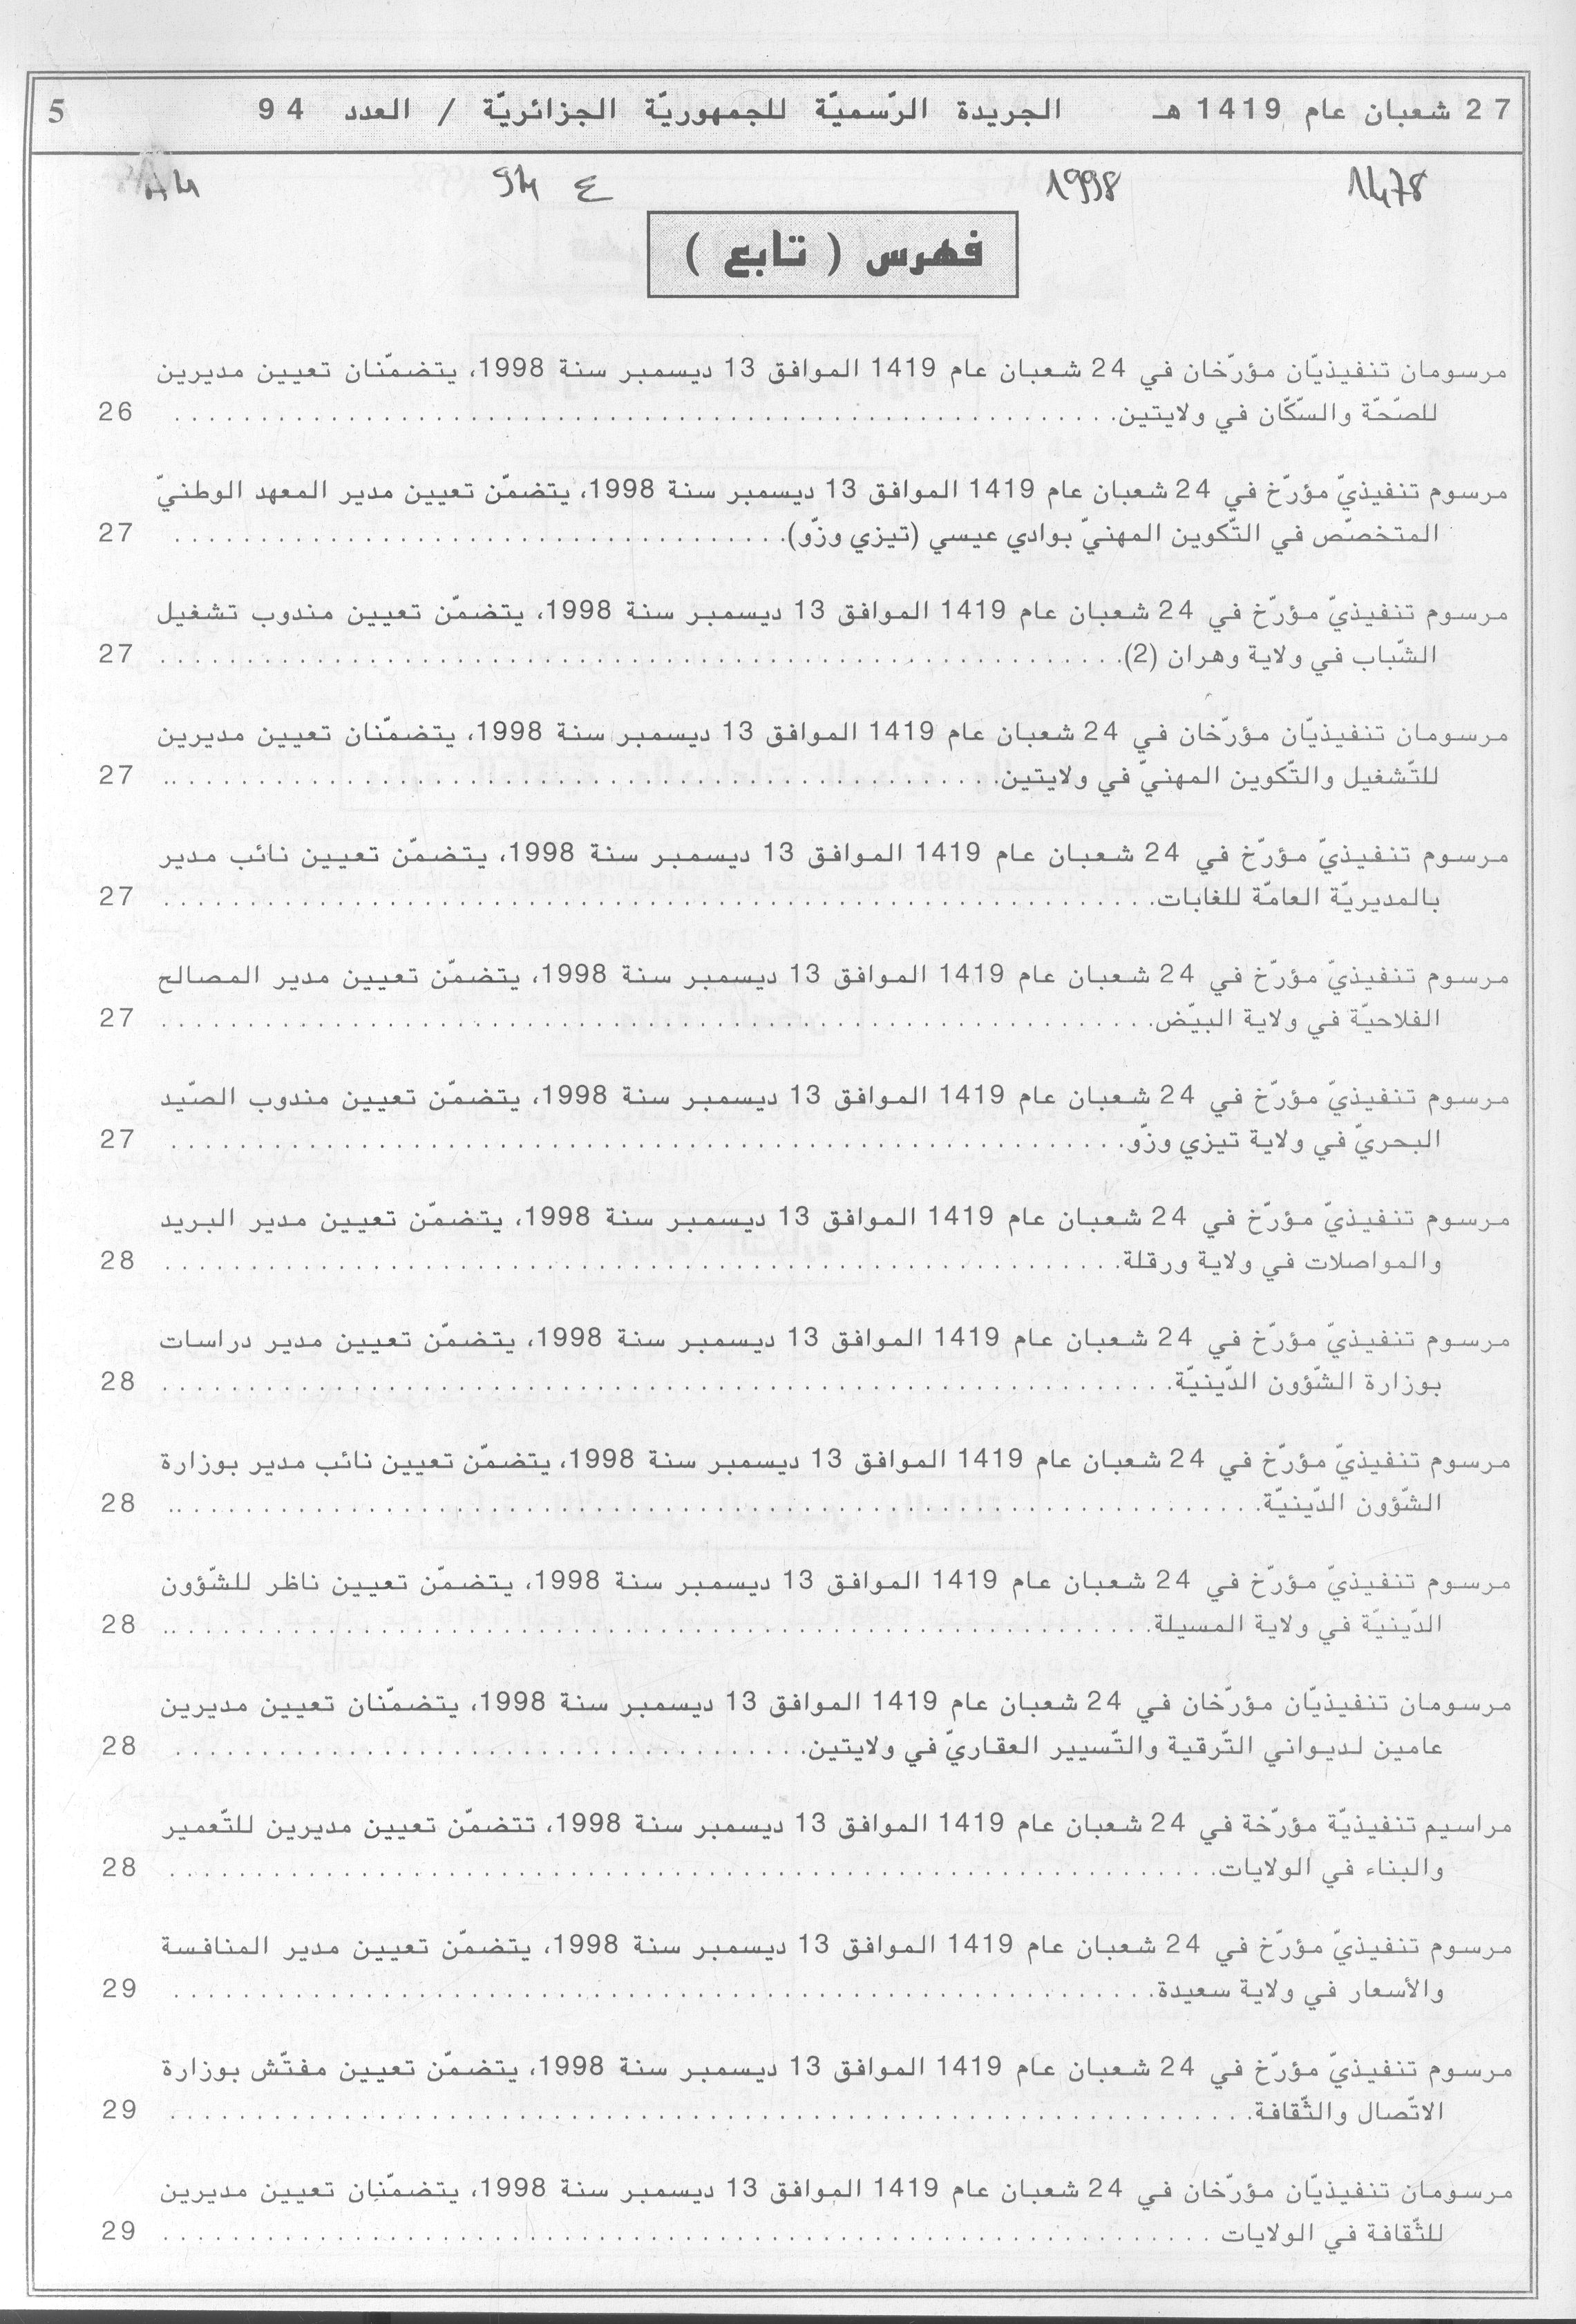 27 شعبان عام 1419 هـ الجريدة الرّسميّة للجمهوريّة الجزائريّة / العدد 94 5
1478 1998 ع 94
فهرس ( تابع )
مرسومان تنفيذيّان مؤرّخان في 24 شعبان عام 1419 الموافق 13 ديسمبر سنة 1998، يتضمّنان تعيين مديرين
للصّحّة والسّكّان في ولايتين. 26
مرسوم تنفيذيّ مؤرّخ في 24 شعبان عام 1419 الموافق 13 ديسمبر سنة 1998، يتضمّن تعيين مدير المعهد الوطنيّ
المتخصّص في التّكوين المهنيّ بوادي عيسي (تيزي وزّو). 27
مرسوم تنفيذيّ مؤرّخ في 24 شعبان عام 1419 الموافق 13 ديسمبر سنة 1998، يتضمّن تعيين مندوب تشغيل
الشّباب في ولاية وهران (2). 27
مرسومان تنفيذيّان مؤرّخان في 24 شعبان عام 1419 الموافق 13 ديسمبر سنة 1998، يتضمّنان تعيين مديرين
للتّشغيل والتّكوين المهنيّ في ولايتين. 27
مرسوم تنفيذيّ مؤرّخ في 24 شعبان عام 1419 الموافق 13 ديسمبر سنة 1998، يتضمّن تعيين نائب مدير
بالمديريّة العامّة للغابات. 27
مرسوم تنفيذيّ مؤرّخ في 24 شعبان عام 1419 الموافق 13 ديسمبر سنة 1998، يتضمّن تعيين مدير المصالح
الفلاحيّة في ولاية البيّض. 27
مرسوم تنفيذيّ مؤرّخ في 24 شعبان عام 1419 الموافق 13 ديسمبر سنة 1998، يتضمّن تعيين مندوب الصّيد
البحريّ في ولاية تيزي وزّو. 27
مرسوم تنفيذيّ مؤرّخ في 24 شعبان عام 1419 الموافق 13 ديسمبر سنة 1998، يتضمّن تعيين مدير البريد
والمواصلات في ولاية ورقلة. 28
مرسوم تنفيذيّ مؤرّخ في 24 شعبان عام 1419 الموافق 13 ديسمبر سنة 1998، يتضمّن تعيين مدير دراسات
بوزارة الشّؤون الدّينيّة. 28
مرسوم تنفيذيّ مؤرّخ في 24 شعبان عام 1419 الموافق 13 ديسمبر سنة 1998، يتضمّن تعيين نائب مدير بوزارة
الشّؤون الدّينيّة. 28
مرسوم تنفيذيّ مؤرّخ في 24 شعبان عام 1419 الموافق 13 ديسمبر سنة 1998، يتضمّن تعيين ناظر للشّؤون
الدّينيّة في ولاية المسيلة. 28
مرسومان تنفيذيّان مؤرّخان في 24 شعبان عام 1419 الموافق 13 ديسمبر سنة 1998، يتضمّنان تعيين مديرين
عامين لديواني التّرقية والتّسيير العقاريّ في ولايتين. 28
مراسيم تنفيذيّة مؤرّخة في 24 شعبان عام 1419 الموافق 13 ديسمبر سنة 1998، تتضمّن تعيين مديرين للتّعمير
والبناء في الولايات. 28
مرسوم تنفيذيّ مؤرّخ في 24 شعبان عام 1419 الموافق 13 ديسمبر سنة 1998، يتضمّن تعيين مدير المنافسة
والأسعار في ولاية سعيدة. 29
مرسوم تنفيذيّ مؤرّخ في 24 شعبان عام 1419 الموافق 13 ديسمبر سنة 1998، يتضمّن تعيين مفتّش بوزارة
الاتّصال والثّقافة. 29
مرسومان تنفيذيّان مؤرّخان في 24 شعبان عام 1419 الموافق 13 ديسمبر سنة 1998، يتضمّنان تعيين مديرين
للثّقافة في الولايات 29